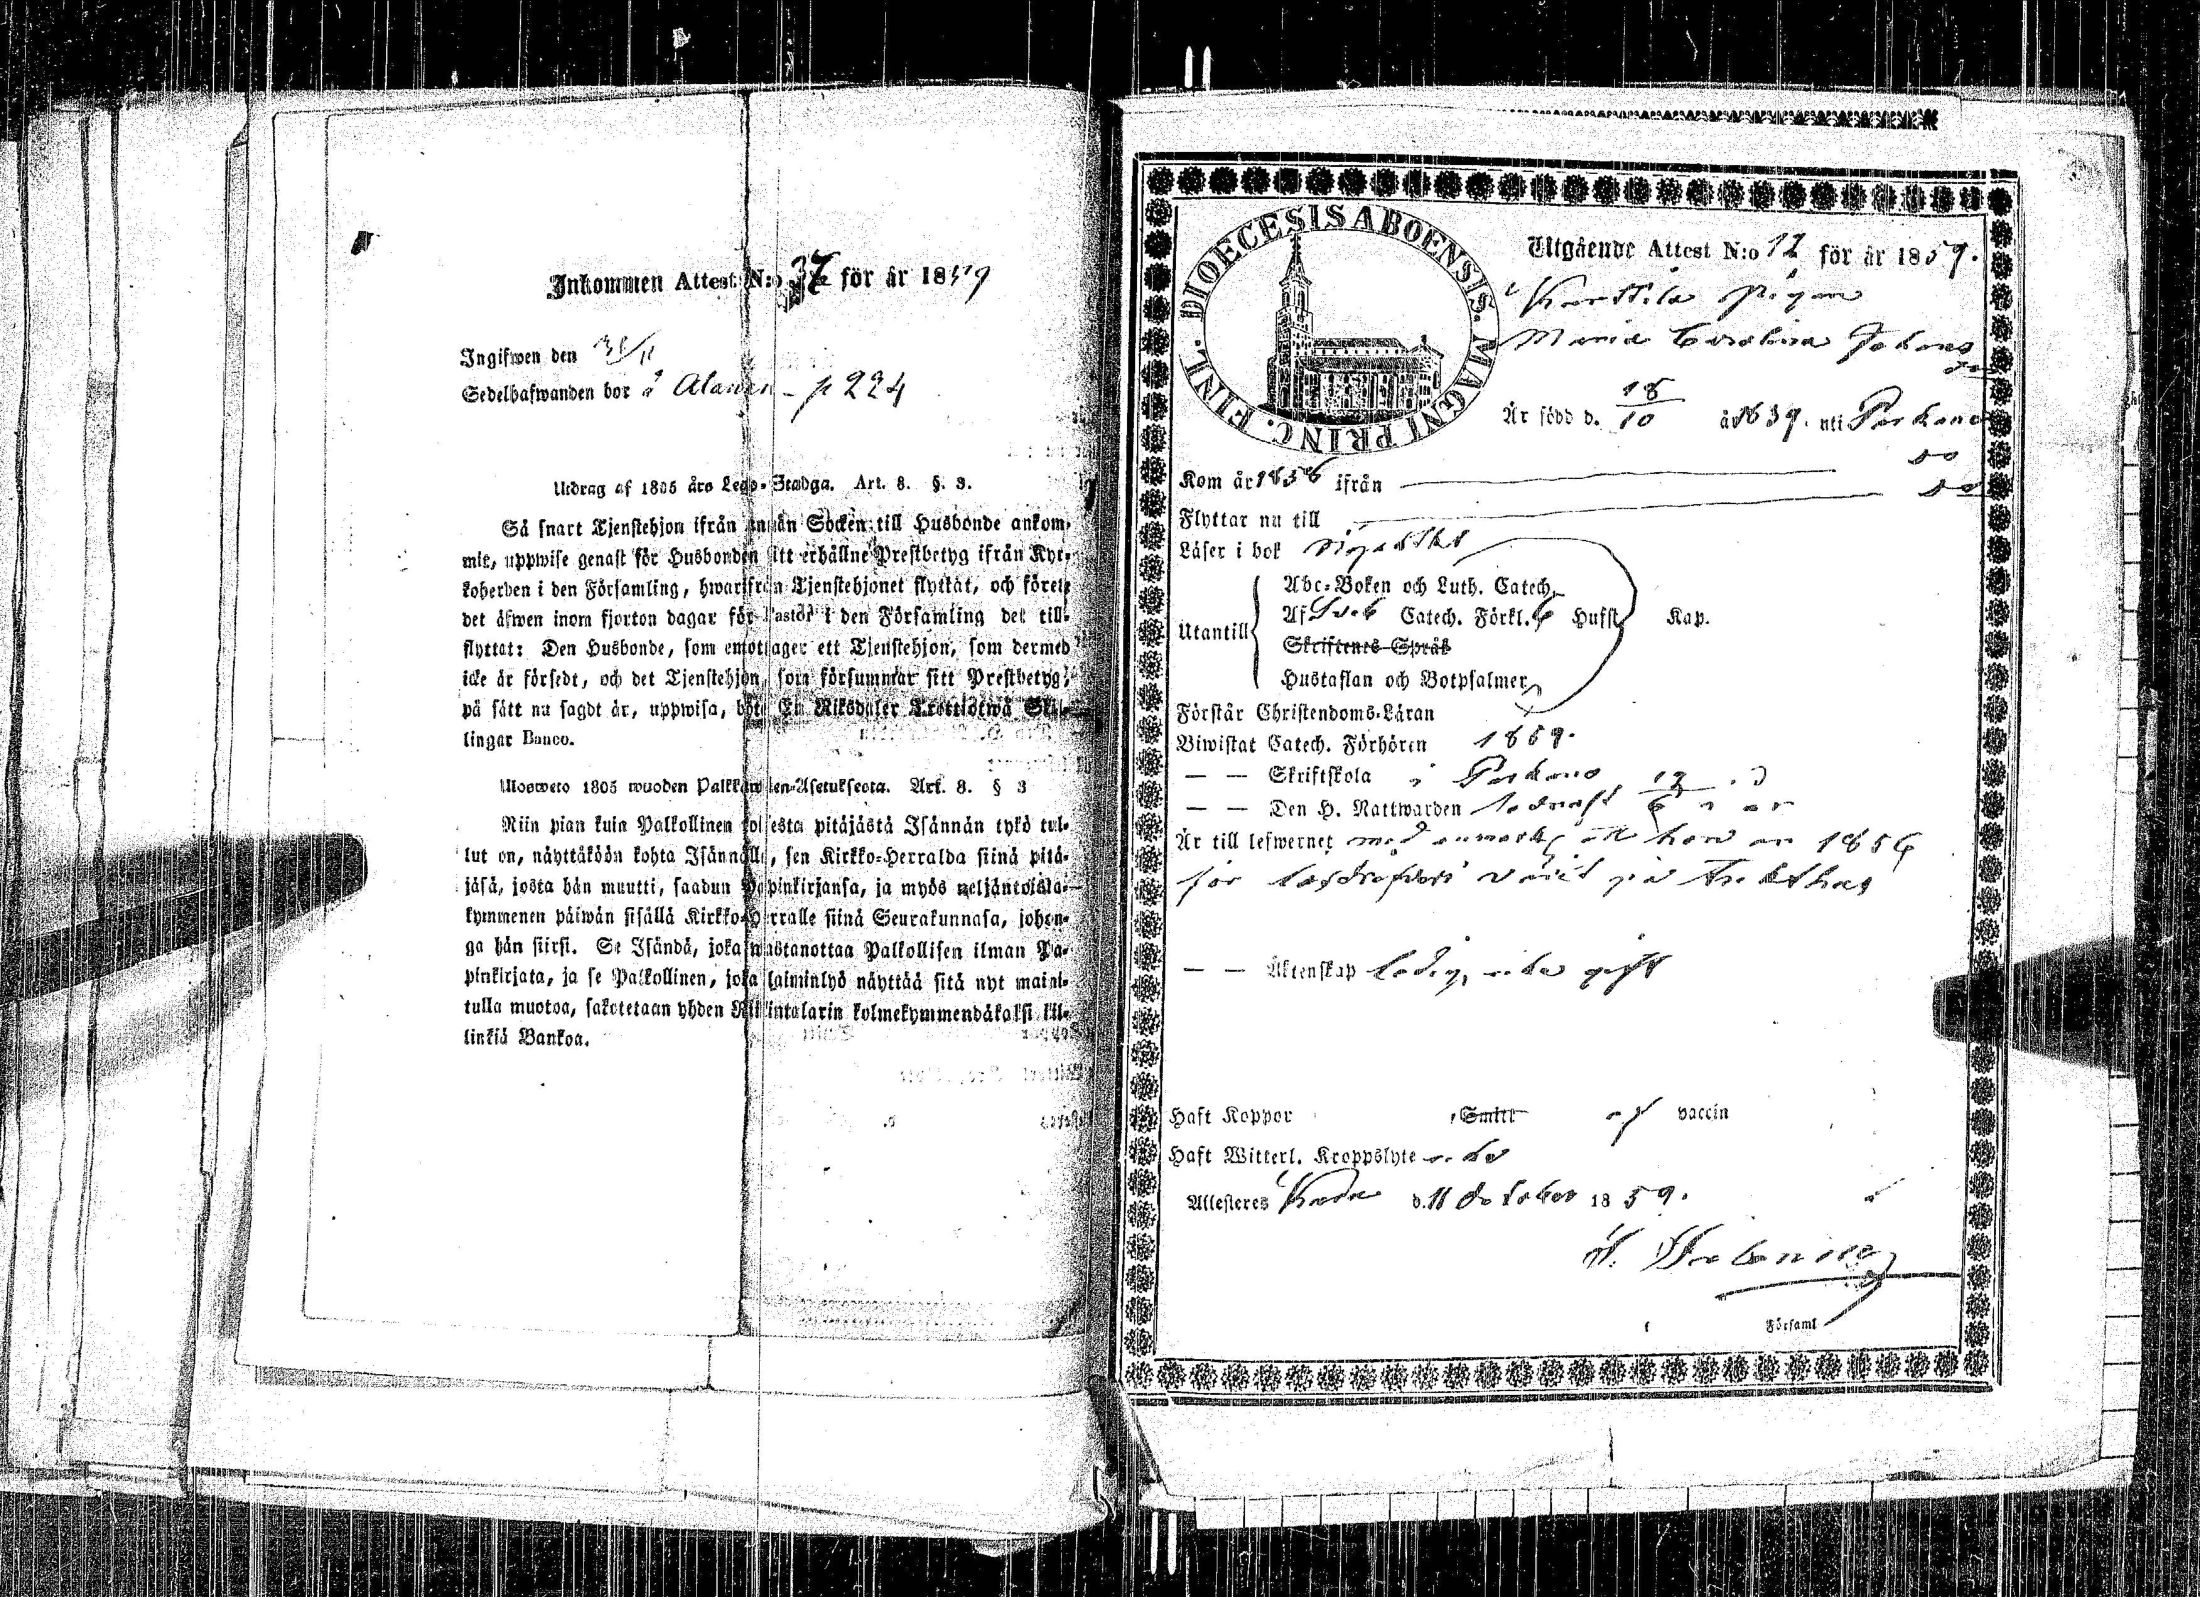 Inkommen Attest N:o 37 för år 1859
Ingifwen den
Sedelhafwanden bor å Alanen - p 224
Utdrag af 1805 års Lego-Stadga. Art. 8. §. 3.
Så snart Tjenstehjon ifrån annan Socken till Husbonde ankom-
mit, uppwise genast för Husbonden sitt erhållne Prestbetyg ifrån Kyr-
koherden i den Församling, hwarifrån Tjenstehjonet flyttat, och förete
det äfwen inom fjorton dagar för Pastor i den Församling det till-
flyttat: Den Husbonde, som emottager ett Tjenstehjon, som dermed
icke är försedt, och det Tjenstehjon, som försummar sitt Prestbetyg,
på sätt nu sagdt är, uppwisa, böte En Riksdaler Trettiotwå Skil-
lingar Banco.
Ulosweto 1805 wuoden Palkkawäen-Asetuksesta. Art. 8. § 3
Niin pian kuin Palkollinen toisesta pitäjästä Isännän tykö tul-
lut on, näyttäköön kohta Isännälle, sen Kirkko-Herralda siinä pitä-
jäsä, josta hän muutti, saadun Papinkirjansa, ja myös neljäntoista-
kymmenen päiwän sisällä Kirkko-Herralle siinä Seurakunnasa, johon-
ga hän siirsi. Se Isändä, joka wastanottaa Palkollisen ilman Pa-
pinkirjata, ja se Palkollinen, joka laiminlyö näyttää sitä nyt maini-
tulla muotoa, sakotetaan yhden Riikintalarin kolmekymmendäkaksi kil-
linkiä Bankoa.
DIOECESIS ABOENSIS. MAGNI PRINC. FINL.
Utgående Attest N:o 12 för år 1859.
Karttila pigan
Maria Carolina Johans
Är född d. 18/10 år 1839. uti Parkano
Kom år 1856 ifrån do
Flyttar nu till do
Läser i bok
Abc-Boken och Luth. Catech.
Utantill Af Sveb Catech. Förkl. Hufst. Kap.
Skriftenes Språk
Hustaflan och Botpsalmer
Förstår Christendoms-Läran
Biwistat Catech. Förhören 1859.
— — Skriftskola i Parkano
— — Den H. Nattwarden sednast
Är till lefwernet med anmärkn att hon år 1856
för
— — Äktenskap ledig, icke gift
Haft Koppor Smitt af vaccin
Haft Witterl. Kroppslyte icke
Attesteres d. 11 October 1859.
Församl